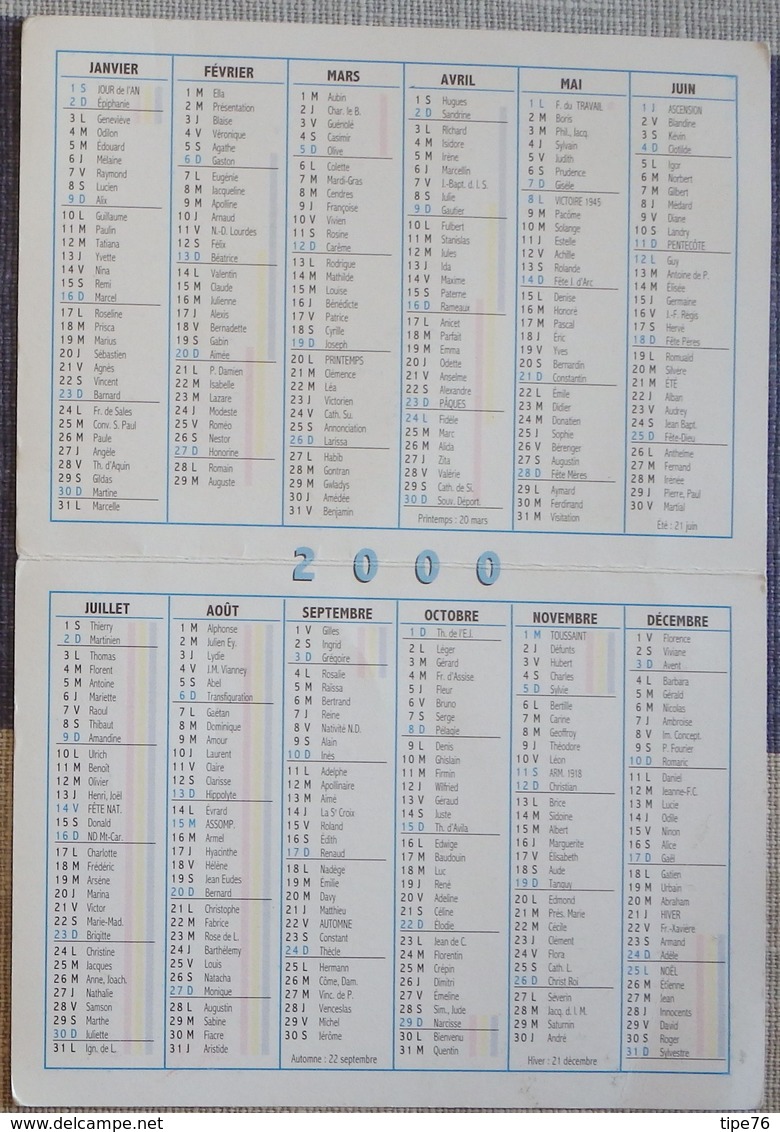 JANVIER
1 S JOUR de l'AN
2 D Épiphanie
3 L Geneviève
4 M Odilon
5 M Édouard
6 J Mélaine
7 V Raymond
8 S Lucien
9 D Alix
10 L Guillaume
11 M Paulin
12 M Tatiana
13 J Yvette
14 V Nina
15 S Remi
16 D Marcel
17 L Roseline
18 M Prisca
19 M Marius
20 J Sébastien
21 V Agnès
22 S Vincent
23 D Barnard
24 L Fr. de Sales
25 M Conv. S. Paul
26 M Paule
27 J Angèle
28 V Th. d'Aquin
29 S Gildas
30 D Martine
31 L Marcelle
FÉVRIER
1 M Ella
2 M Présentation
3 J Blaise
4 V Véronique
5 S Agathe
6 D Gaston
7 L Eugénie
8 M Jacqueline
9 M Apolline
10 J Arnaud
11 V N.-D. Lourdes
12 S Félix
13 D Béatrice
14 L Valentin
15 M Claude
16 M Julienne
17 J Alexis
18 V Bernadette
19 S Gabin
20 D Aimée
21 L P. Damien
22 M Isabelle
23 M Lazare
24 J Modeste
25 V Roméo
26 S Nestor
27 D Honorine
28 L Romain
29 M Auguste
MARS
1 M Aubin
2 J Char. le B.
3 V Guénolé
4 S Casimir
5 D Olive
6 L Colette
7 M Mardi-Gras
8 M Cendres
9 J Françoise
10 V Vivien
11 S Rosine
12 D Carême
13 L Rodrigue
14 M Mathilde
15 M Louise
16 J Bénédicte
17 V Patrice
18 S Cyrille
19 D Joseph
20 L PRINTEMPS
21 M Clémence
22 M Léa
23 J Victorien
24 V Cath. Su.
25 S Annonciation
26 D Larissa
27 L Habib
28 M Gontran
29 M Gwladys
30 J Amédée
31 V Benjamin
AVRIL
1 S Hugues
2 D Sandrine
3 L Richard
4 M Isidore
5 M Irène
6 J Marcellin
7 V J.-Bapt. d. l. S.
8 S Julie
9 D Gautier
10 L Fulbert
11 M Stanislas
12 M Jules
13 J Ida
14 V Maxime
15 S Paterne
16 D Rameaux
17 L Anicet
18 M Parfait
19 M Emma
20 J Odette
21 V Anselme
22 S Alexandre
23 D PÂQUES
24 L Fidèle
25 M Marc
26 M Alida
27 J Zita
28 V Valérie
29 S Cath. de Si.
30 D Souv. Déport.
Printemps : 20 mars
MAI
1 L F. du TRAVAIL
2 M Boris
3 M Phil., Jacq.
4 J Sylvain
5 V Judith
6 S Prudence
7 D Gisèle
8 L VICTOIRE 1945
9 M Pacôme
10 M Solange
11 J Estelle
12 V Achille
13 S Rolande
14 D Fête J. d'Arc
15 L Denise
16 M Honoré
17 M Pascal
18 J Eric
19 V Yves
20 S Bernardin
21 D Constantin
22 L Émile
23 M Didier
24 M Donatien
25 J Sophie
26 V Bérenger
27 S Augustin
28 D Fête Mères
29 L Aymard
30 M Ferdinand
31 M Visitation
JUIN
1 J ASCENSION
2 V Blandine
3 S Kévin
4 D Clotilde
5 L Igor
6 M Norbert
7 M Gilbert
8 J Médard
9 V Diane
10 S Landry
11 D PENTECÔTE
12 L Guy
13 M Antoine de P.
14 M Élisée
15 J Germaine
16 V J.-F. Régis
17 S Hervé
18 D Fête Pères
19 L Romuald
20 M Silvère
21 M ÉTÉ
22 J Alban
23 V Audrey
24 S Jean Bapt.
25 D Fête-Dieu
26 L Anthelme
27 M Fernand
28 M Irénée
29 J Pierre, Paul
30 V Martial
Eté : 21 juin
2000
JUILLET
1 S Thierry
2 D Martinien
3 L Thomas
4 M Florent
5 M Antoine
6 J Mariette
7 V Raoul
8 S Thibaut
9 D Amandine
10 L Ulrich
11 M Benoît
12 M Olivier
13 J Henri, Joël
14 V FÊTE NAT.
15 S Donald
16 D ND Mt-Car.
17 L Charlotte
18 M Frédéric
19 M Arsène
20 J Marina
21 V Victor
22 S Marie-Mad.
23 D Brigitte
24 L Christine
25 M Jacques
26 M Anne, Joach.
27 J Nathalie
28 V Samson
29 S Marthe
30 D Juliette
31 L Ign. de L.
AOÛT
1 M Alphonse
2 M Julien Ey.
3 J Lydie
4 V J.M. Vianney
5 S Abel
6 D Transfiguration
7 L Gaétan
8 M Dominique
9 M Amour
10 J Laurent
11 V Claire
12 S Clarisse
13 D Hippolyte
14 L Évrard
15 M ASSOMP.
16 M Armel
17 J Hyacinthe
18 V Hélène
19 S Jean Eudes
20 D Bernard
21 L Christophe
22 M Fabrice
23 M Rose de L.
24 J Barthélemy
25 V Louis
26 S Natacha
27 D Monique
28 L Augustin
29 M Sabine
30 M Fiacre
31 J Aristide
SEPTEMBRE
1 V Gilles
2 S Ingrid
3 D Grégoire
4 L Rosalie
5 M Raïssa
6 M Bertrand
7 J Reine
8 V Nativité N.D.
9 S Alain
10 D Inès
11 L Adelphe
12 M Apollinaire
13 M Aimé
14 J La Sᵗᵉ Croix
15 V Roland
16 S Édith
17 D Renaud
18 L Nadège
19 M Émilie
20 M Davy
21 J Matthieu
22 V AUTOMNE
23 S Constant
24 D Thècle
25 L Hermann
26 M Côme, Dam.
27 M Vinc. de P.
28 J Venceslas
29 V Michel
30 S Jérôme
Automne : 22 septembre
OCTOBRE
1 D Th. de l'E.J.
2 L Léger
3 M Gérard
4 M Fr. d'Assise
5 J Fleur
6 V Bruno
7 S Serge
8 D Pélagie
9 L Denis
10 M Ghislain
11 M Firmin
12 J Wilfried
13 V Géraud
14 S Juste
15 D Th. d'Avila
16 L Edwige
17 M Baudouin
18 M Luc
19 J René
20 V Adeline
21 S Céline
22 D Élodie
23 L Jean de C.
24 M Florentin
25 M Crépin
26 J Dimitri
27 V Émeline
28 S Sim., Jude
29 D Narcisse
30 L Bienvenu
31 M Quentin
NOVEMBRE
1 M TOUSSAINT
2 J Défunts
3 V Hubert
4 S Charles
5 D Sylvie
6 L Bertille
7 M Carine
8 M Geoffroy
9 J Théodore
10 V Léon
11 S ARM. 1918
12 D Christian
13 L Brice
14 M Sidoine
15 M Albert
16 J Marguerite
17 V Élisabeth
18 S Aude
19 D Tanguy
20 L Edmond
21 M Prés. Marie
22 M Cécile
23 J Clément
24 V Flora
25 S Cath. L.
26 D Christ Roi
27 L Séverin
28 M Jacq. d. l. M.
29 M Saturnin
30 J André
Hiver : 21 décembre
DÉCEMBRE
1 V Florence
2 S Viviane
3 D Avent
4 L Barbara
5 M Gérald
6 M Nicolas
7 J Ambroise
8 V Im. Concept.
9 S P. Fourier
10 D Romaric
11 L Daniel
12 M Jeanne-F.C.
13 M Lucie
14 J Odile
15 V Ninon
16 S Alice
17 D Gaël
18 L Gatien
19 M Urbain
20 M Abraham
21 J HIVER
22 V Fr.-Xavière
23 S Armand
24 D Adèle
25 L NOËL
26 M Étienne
27 M Jean
28 J Innocents
29 V David
30 S Roger
31 D Sylvestre
delcampe.net
tipe76